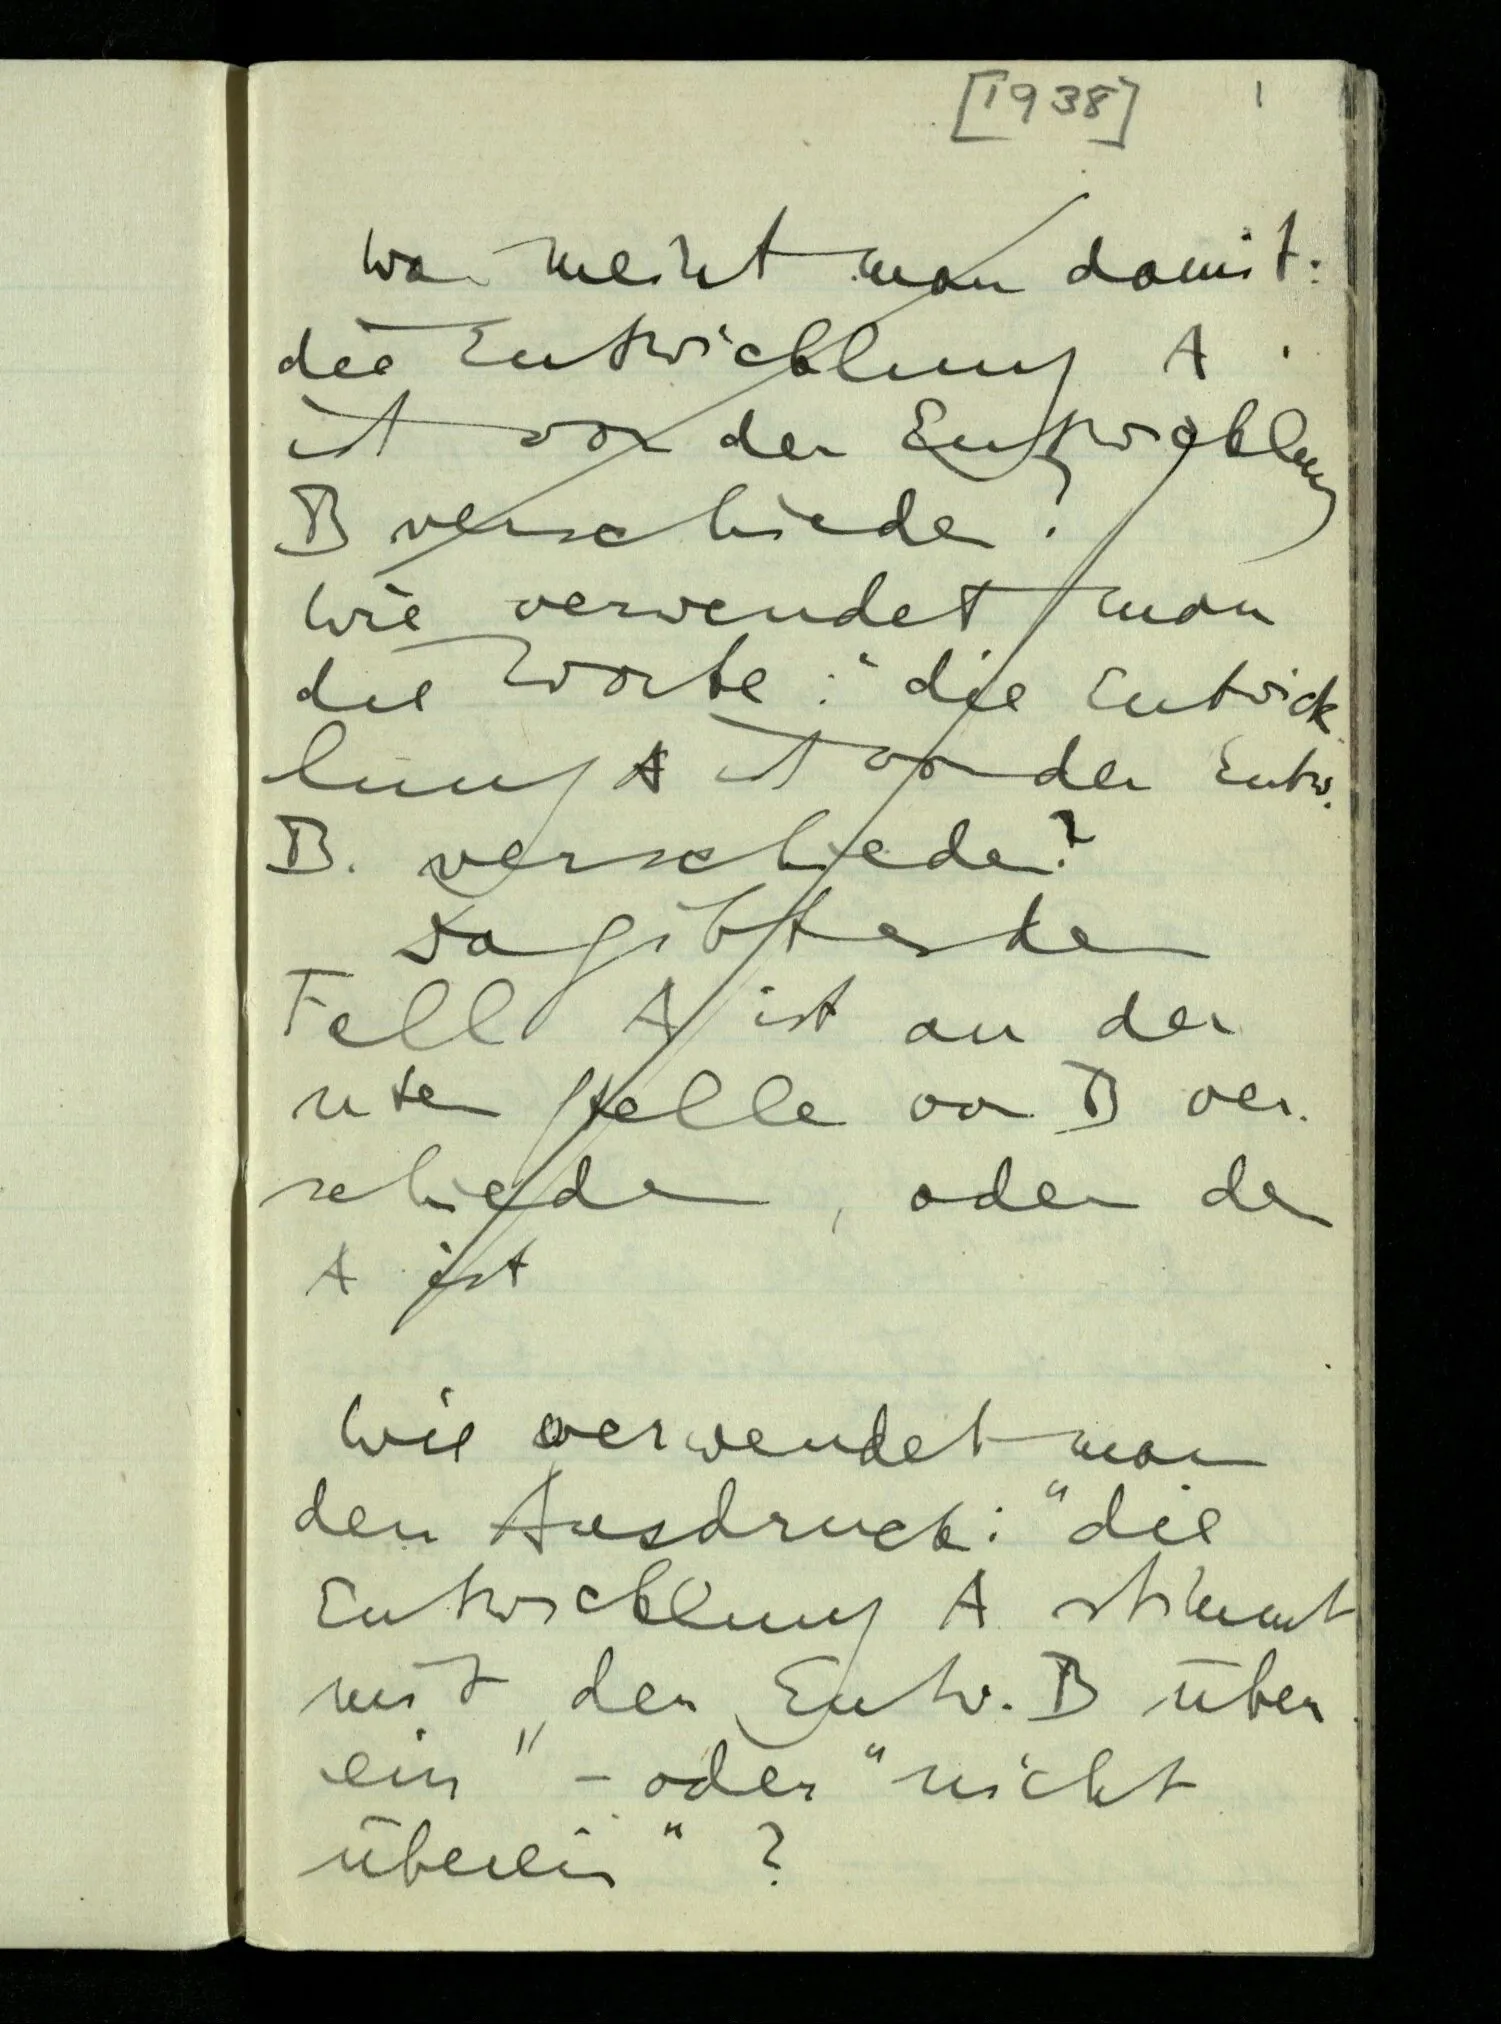 [1938] 1
Was meint man damit:
die Entwicklung A
ist von der Entwicklung
B verschieden?
Wie verwendet man
die Worte: "die Entwick
lung A ist von der Entw.
B. verschieden?
Da gibt es den
Fall A ist an der
nten Stelle von B ver-
schieden, oder der
A ist
Wie verwendet man
den Ausdruck: "die
Entwicklung A stimmt
mit der Entw. B über
ein" – oder "nicht
überein"?